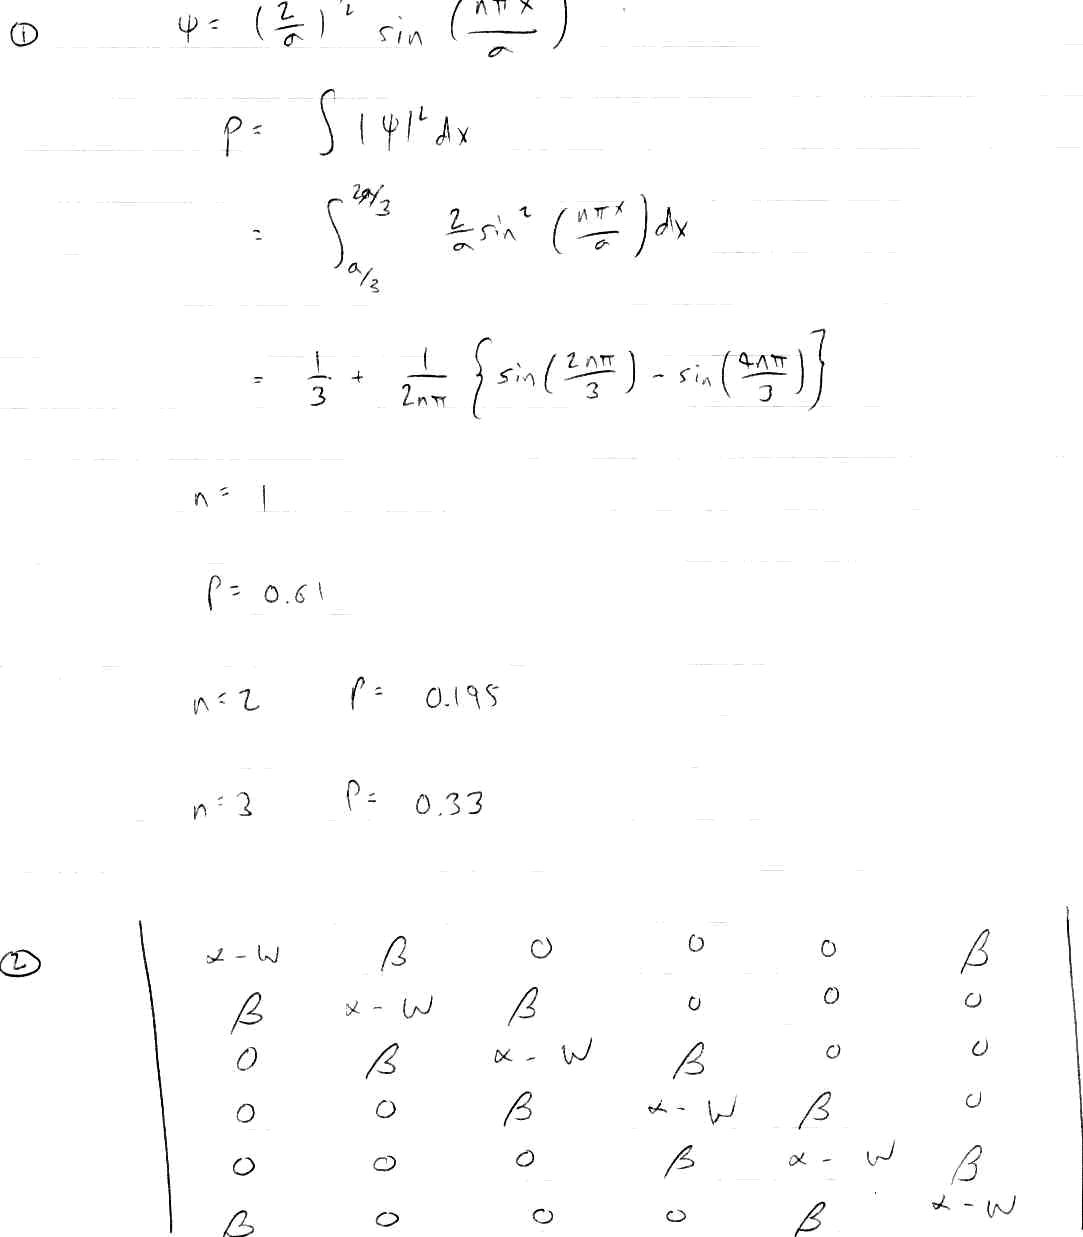 ① ψ = (2/a)^2 sin (nπx/a)
P = ∫ |ψ|² dx
= ∫_{a/3}^{2a/3} 2/a sin² (nπx/a) dx
= 1/3 + 1/2nπ { sin(2nπ/3) - sin(4nπ/3) }
n = 1
P = 0.61
n = 2 P = 0.195
n = 3 P = 0.33
② | α-W β 0 0 0 β |
| β α-W β 0 0 0 |
| 0 β α-W β 0 0 |
| 0 0 β α-W β 0 |
| 0 0 0 β α-W β |
| β 0 0 0 β α-W |